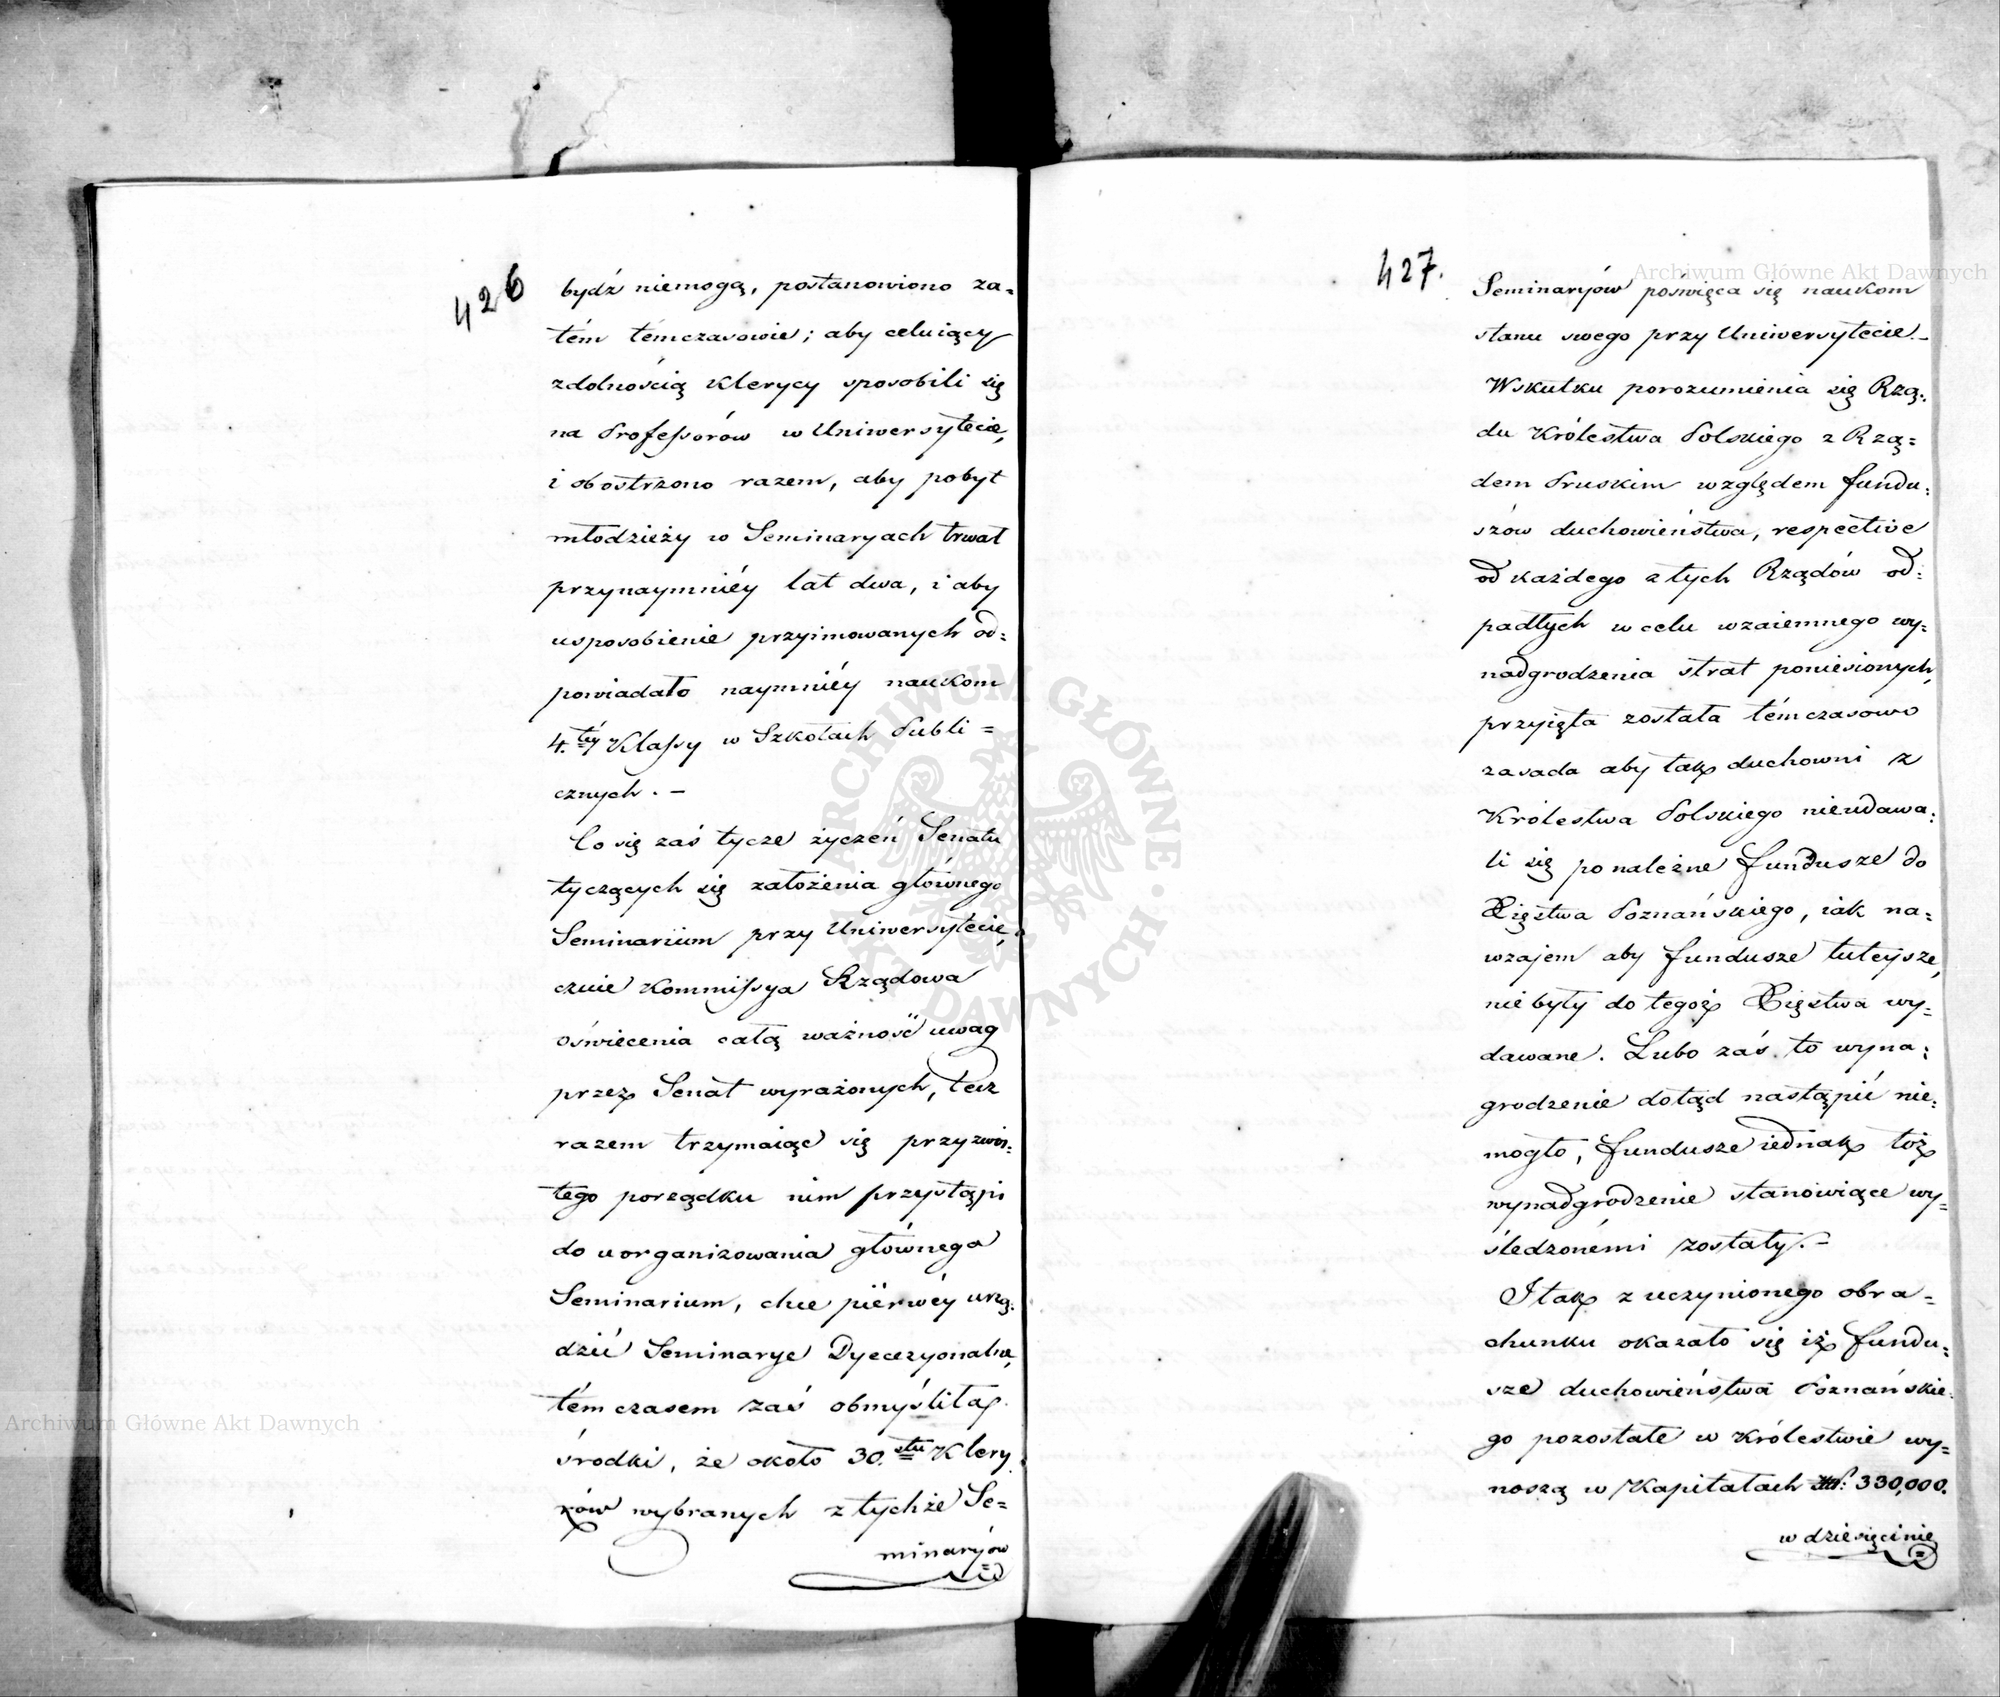 426
bydź niemogą, postanowiono za=
tém témczasowie; aby celuiący
zdolnością Klerycy sposobili się
na Professorów w Uniwersytecie,
i obostrzono razem, aby pobyt
młodzieży w Seminaryach trwał
przynaymniéy lat dwa, i aby
usposobienie przyimowanych od=
powiadało naymniéy naukom
4.téy Klassy w Szkołach Publi=
cznych. –
Co się zaś tycze życzeń Senatu
tyczących się założenia głównego
Seminarium przy Uniwersytecie,
czuie Kommissya Rządowa
oświecenia całą ważność uwag
przez Senat wyrażonych, lecz
razem trzymaiąc się przyzwoi=
tego porządku nim przystąpi
do uorganizowania głównego
Seminarium, chce piérwéy urzą=
dzić Seminarye Dyecezyonalne,
tém czasem zaś obmyśliła
środki, że około 30.stu Klery
ków wybranych z tychże Se=
minaryów
427.
Seminaryów poświęca się naukom
stanu swego przy Uniwersytecie. –
Wskutku porozumienia się Rzą=
du Królestwa Polskiego z Rzą=
dem Pruskim względem fundu=
szów duchowieństwa, respective
od każdego z tych Rządów od=
padłych w celu wzaiemnego wy=
nadgrodzenia strat poniesionych,
przyięta została témczasowo
zasada aby tak duchowni z
Królestwa Polskiego nieudawa=
li się po należne fundusze do
Xięstwa Poznańskiego, iak na=
wzajem aby fundusze tuteysze,
nie były do tegoż Xięstwa wy=
dawane. Lubo zaś to wyna=
grodzenie dotąd nastąpić nie=
mogło, fundusze iednak toż
wynadgrodzenie stanowiące wy=
śledzonémi zostały. –
I tak z uczynionego obra=
chunku okazało się iż fundu=
sze duchowieństwa Poznańskie=
go pozostałe w Królestwie wy=
noszą w Kapitałach 330,000.
w dziesięcinie
Archiwum Główne Akt Dawnych
Archiwum Główne Akt Dawnych
ARCHIWUM GŁÓWNE AKT DAWNYCH